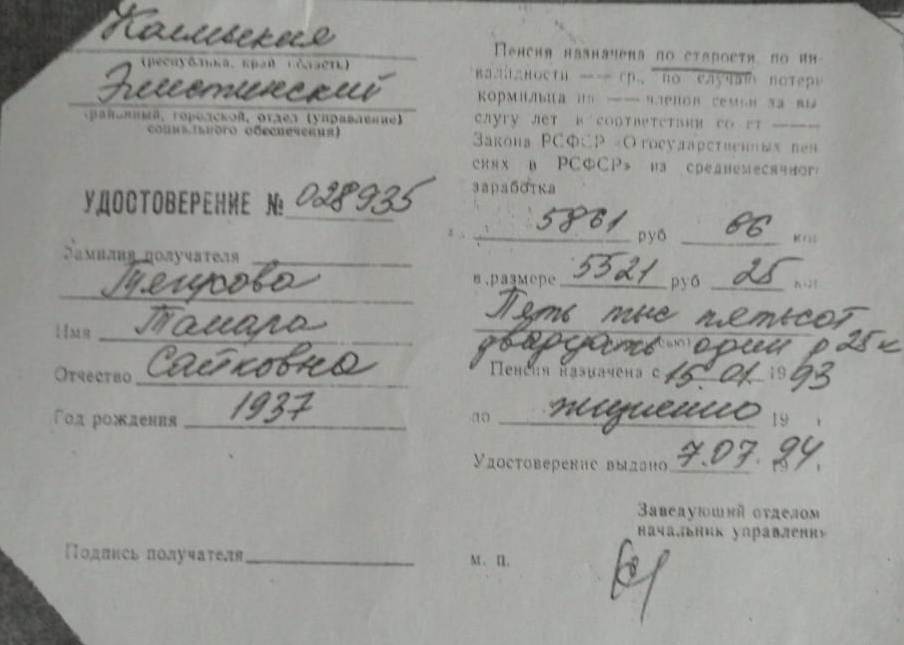 Калмыкия
(республика, край область)
Элистинский
(районный, городской, отдел (управление)
социального обеспечения)
УДОСТОВЕРЕНИЕ № 028935
Фамилия получателя
Имя Тамара
Отчество Сайковна
Год рождения 1937
Подпись получателя
Пенсия назначена по старости, по ин-
валидности — — гр., по случаю потери
кормильца на — — членов семьи за вы
слугу лет в соответствии со ст ———
Закона РСФСР «О государственных пен
сиях в РСФСР» из среднемесячного
заработка
5861 руб 66 коп
в размере 5521 руб 25 коп
Пять тыс пятьсот
двадцать один р 25 к
Пенсия назначена с 15.01 1993
по 19 г
Удостоверение выдано 7.07. 1994 г
Заведующий отделом
начальник управления
м. п.